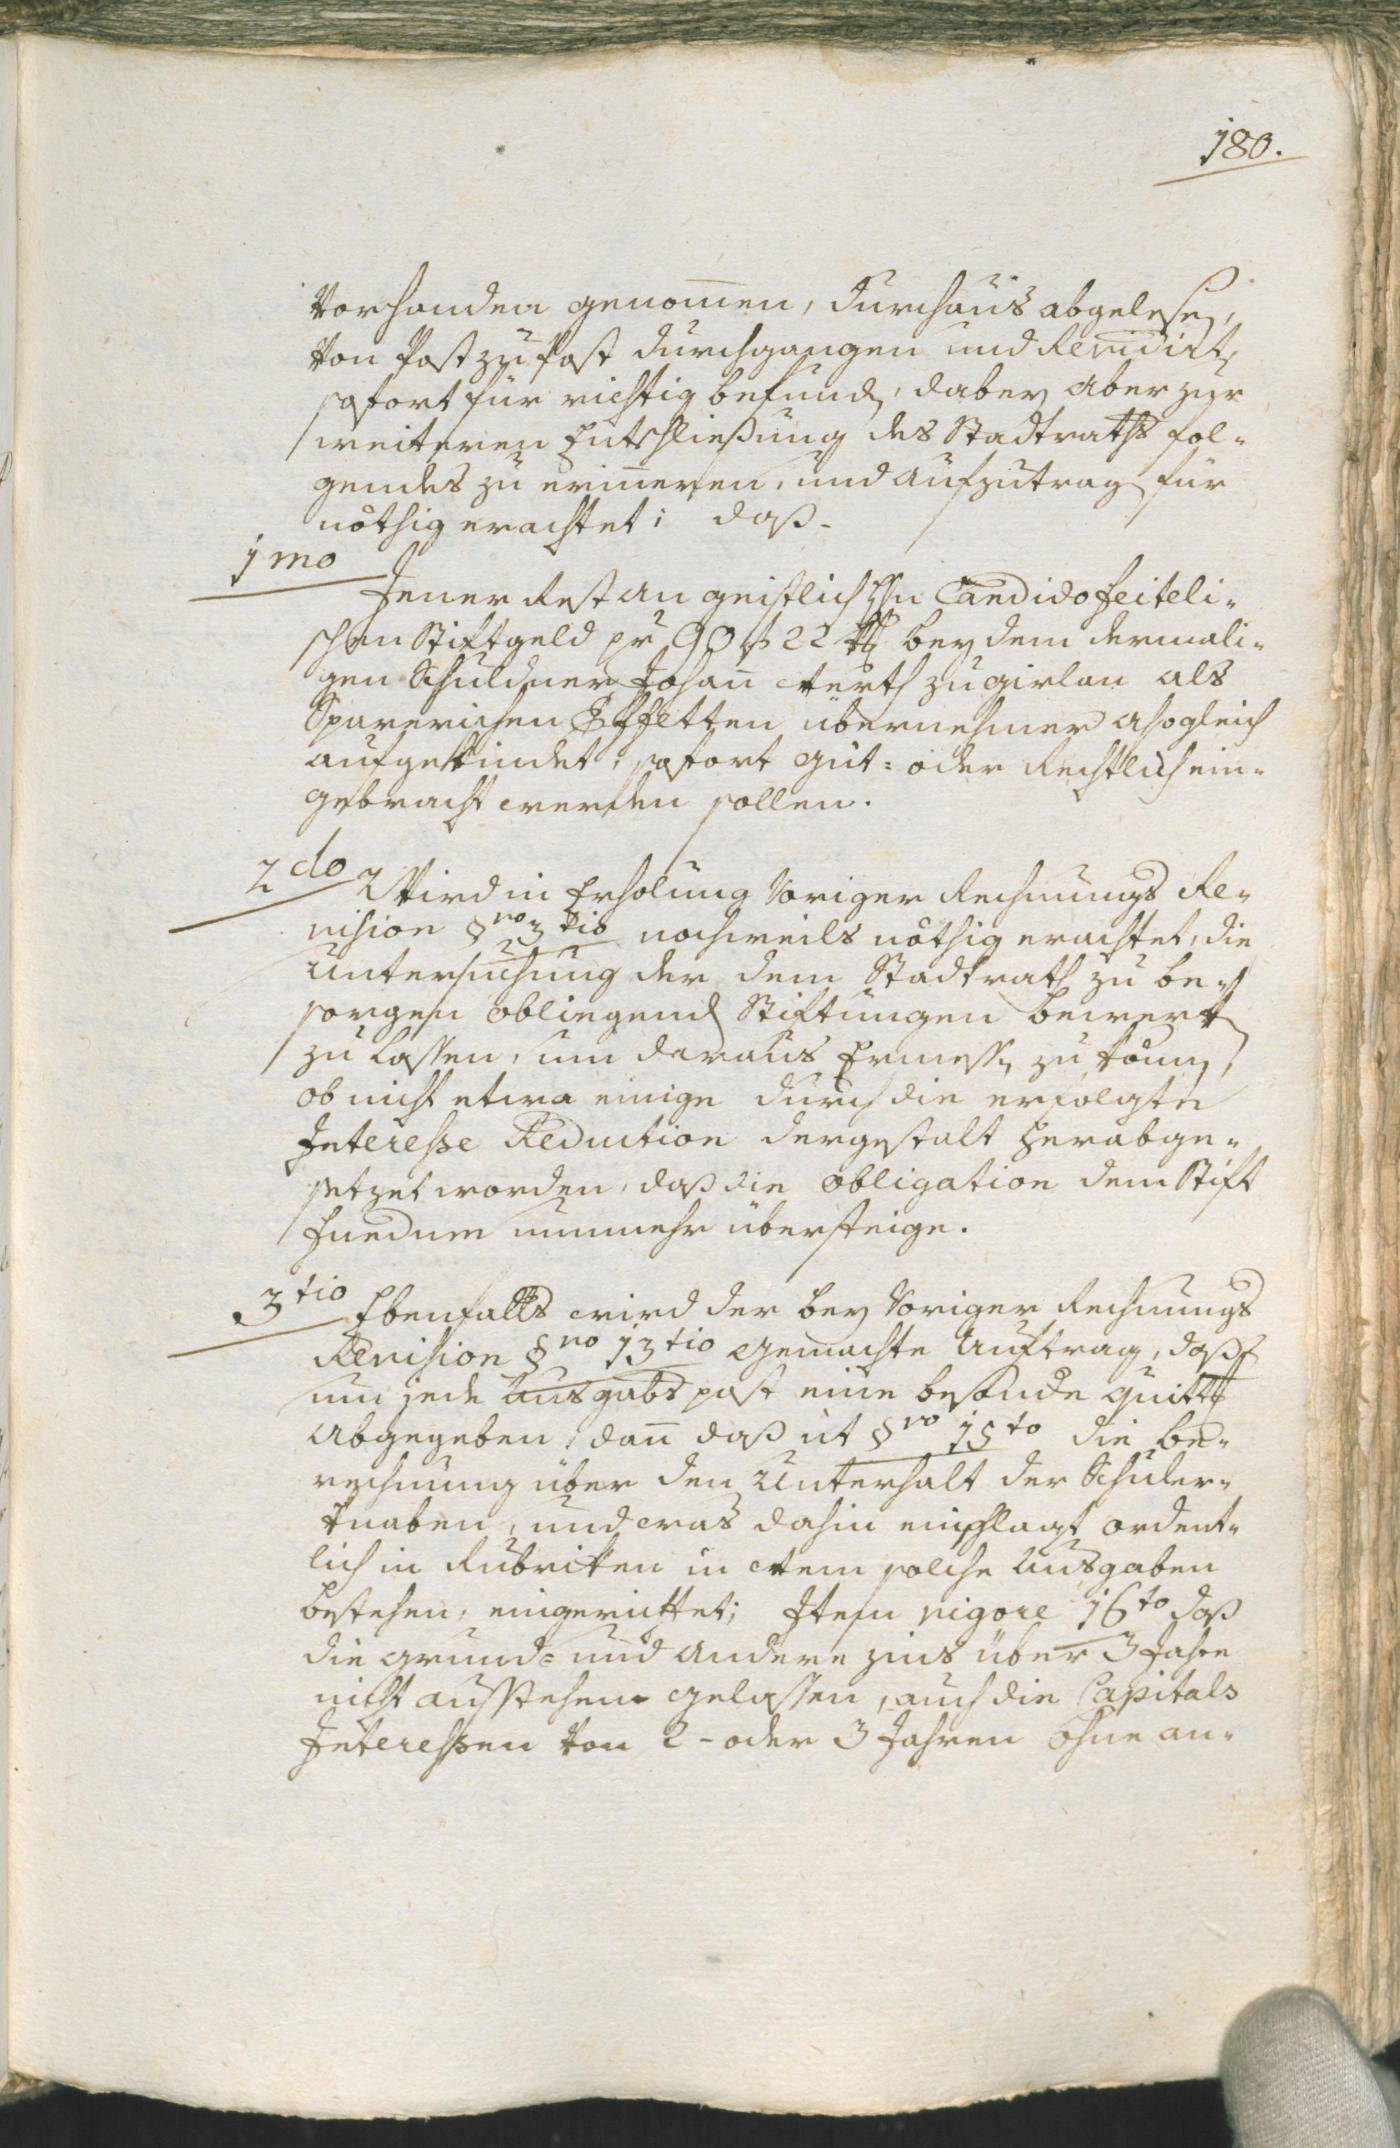 180.
Vorhanden genommen, durchaus abgelesen,
von Post zu Post durchgangen und Revidirt,
sofort für richtig befunden, dabey aber zur
weiteren Entschließung des Stadtraths fol-
gendes zu erinneren, und aufzutragen für
nöthig erachtet; daß
1mo
Jener Rest an geistlich Hrn Candido Zeiteli-
schen Stiftgeld pr 90 f 22 kr bey dem dermali-
gen Schuldner Johann Werth zu Girlan als
Sparerischen Effekten übernehmer alsogleich
aufgekündet, sofort güt- oder Rechtlich ein-
gebracht werden sollen.
2do Wird in Erholung Voriger Rechnungs Re-
vision §ro 3tio nochmals nöthig erachtet, die
Untersuchung der dem Stadtrath zu be-
sorgen obliegenden Stiftungen
zu lassen, um daraus Ermessen zu können,
ob nicht etwa einige durch die erfolgte
Interesse Reduction dergestalt herabge-
setzet worden, daß die obligation dem Stift
Fundum nunmehr übersteige.
3tio Ebenfalls wird der bey Voriger Rechnungs
Revision §ro 13tio gemachte Auftrag, daß
um jede Ausgabs post eine besondere quittung
abgegeben, dann daß ut §ro 15to die be-
rechnung über den Unterhalt der Schuler-
knaben, und was dahin einschlagt ordent-
lich in Rubriken in wem solche Ausgaben
bestehen, eingerichtet; Item vigore 16to daß
die grund- und andere zins über 3 Jahre
nicht ausstehen gelassen, auch die Capitals
Interessen von 2- oder 3 Jahren ohne an-